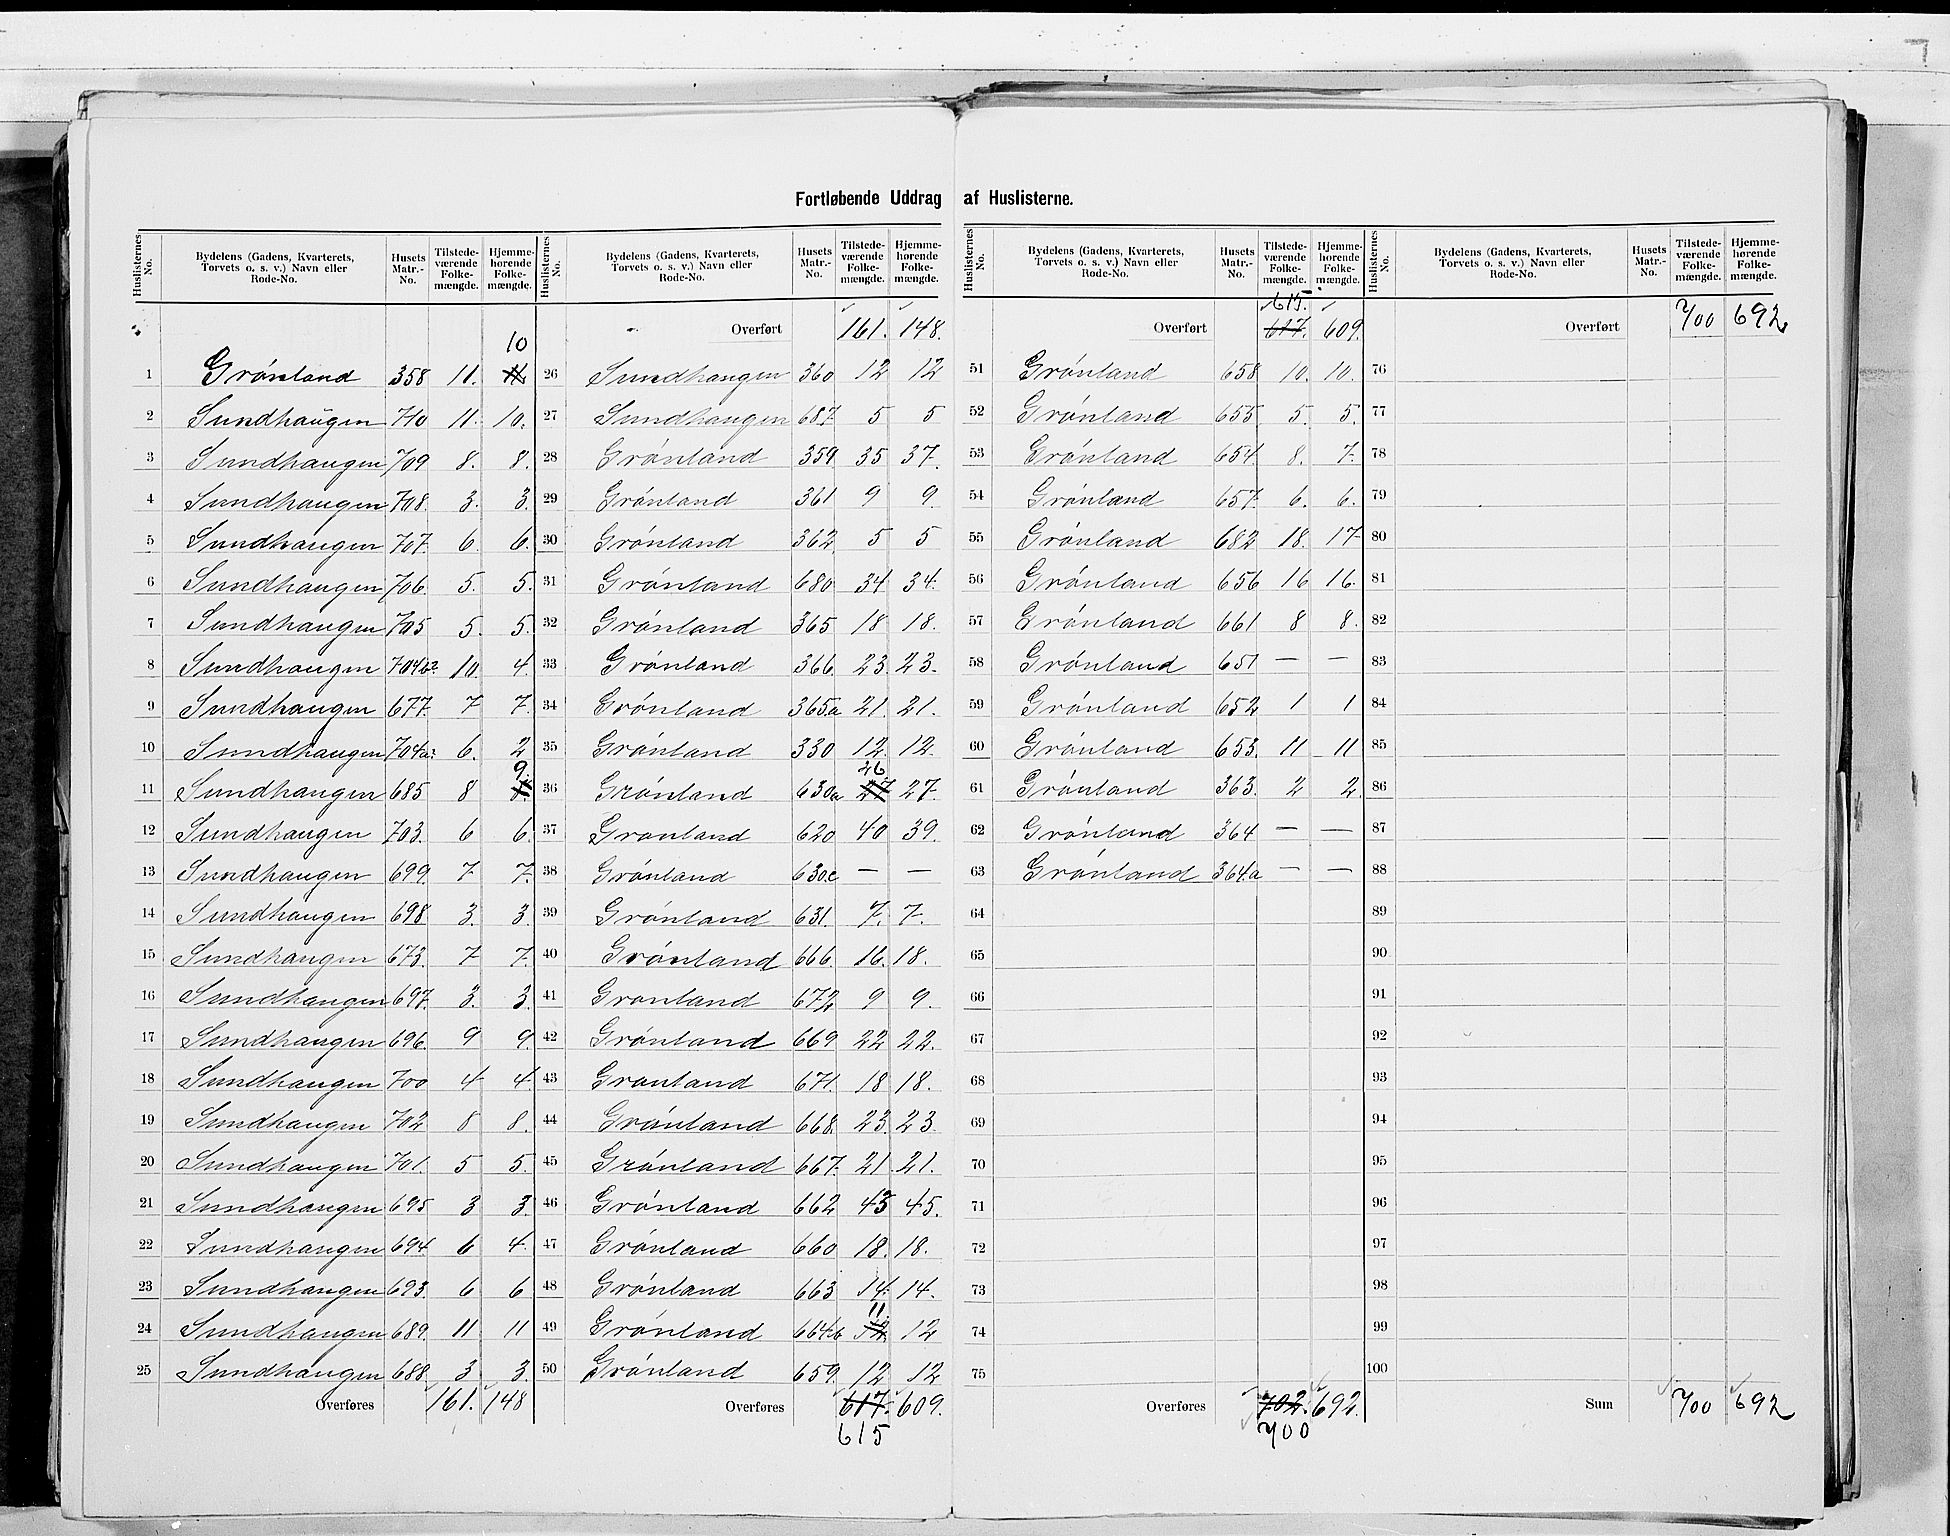 Fortløbende Uddrag af Huslisterne.
Huslisternes No. | Bydelens (Gadens, Kvarterets, Torvets o. s. v.) Navn eller Rode-No. | Husets Matr.-No. | Tilstede-værende Folke-mængde. | Hjemme-hørende Folke-mængde.
10
1 Grönland 358 11. 11
2 Sundhaugen 710 11. 10.
3 Sundhaugen 709 8. 8.
4 Sundhaugen 708. 3. 3.
5 Sundhaugen 707. 6. 6.
6 Sundhaugen 706. 5. 5.
7 Sundhaugen 705 5. 5.
8 Sundhaugen 704b2. 10. 4.
9 Sundhaugen 677. 7 7.
10 Sundhaugen 704a2 6. 2
9.
11 Sundhaugen 685 8
12 Sundhaugen 703. 6 6.
13 Sundhaugen 699. 7 7.
14 Sundhaugen 698. 3. 3.
15 Sundhaugen 673. 7 7.
16 Sundhaugen 697. 3. 3.
17 Sundhaugen 696. 9 9.
18 Sundhaugen 700 4 4.
19 Sundhaugen 702 8 8.
20 Sundhaugen 701. 5 5.
21 Sundhaugen 695 3 3.
22 Sundhaugen 694 6 4.
23 Sundhaugen 693. 6 6
24 Sundhaugen 689. 11 11
25 Sundhaugen 688. 3 3.
Overføres 161. 148
Huslisternes No. | Bydelens (Gadens, Kvarterets, Torvets o. s. v.) Navn eller Rode-No. | Husets Matr.-No. | Tilstede-værende Folke-mængde. | Hjemme-hørende Folke-mængde.
Overført 161. 148.
26 Sundhaugen 360 12 12
27 Sundhaugen 687. 5 5
28 Grönland 359 35 37.
29 Grönland 361 9 9.
30 Grönland 362 5 5
31 Grönland 680 34 34.
32 Grönland 365 18 18.
33 Grönland 366. 23. 23.
34 Grönland 365.a 21. 21.
35 Grönland 330 12. 12.
26
36 Grönland 630a 27 27.
37 Grönland 620 40 39.
38 Grönland 630.c — —
39 Grönland 631. 7. 7.
40 Grönland 666. 16. 18.
41 Grönland 672 9 9.
42 Grönland 669 22 22.
43 Grönland 671. 18 18.
44 Grönland 668. 23. 23
45 Grönland 667. 21 21.
46 Grönland 662 43 45.
47 Grönland 660 18. 18.
48 Grönland 663 14. 14.
11
49 Grönland 664.b 12 12
50 Grönland 659. 12 12
Overføres 617. 609.
615
Huslisternes No. | Bydelens (Gadens, Kvarterets, Torvets o. s. v.) Navn eller Rode-No. | Husets Matr.-No. | Tilstede-værende Folke-mængde. | Hjemme-hørende Folke-mængde.
615.
Overført 617. 609.
51 Grönland 658 10. 10.
52 Grönland 655 5. 5.
53 Grönland 654. 8. 7.
54 Grönland 657. 6. 6.
55 Grönland 682 18. 17
56 Grönland 656 16 16.
57 Grönland 661 8 8.
58 Grönland 651 — —
59 Grönland 652 1 1
60 Grönland 653. 11 11
61 Grönland 363. 2 2.
62 Grönland 364 — —
63 Grönland 364.a — —
64
65
66
67
68
69
70
71
72
73
74
75
Overføres 702. 692.
700
Huslisternes No. | Bydelens (Gadens, Kvarterets, Torvets o. s. v.) Navn eller Rode-No. | Husets Matr.-No. | Tilstede-værende Folke-mængde. | Hjemme-hørende Folke-mængde.
Overført 700 692
76
77
78
79
80
81
82
83
84
85
86
87
88
89
90
91
92
93
94
95
96
97
98
99
100
Sum 700 692